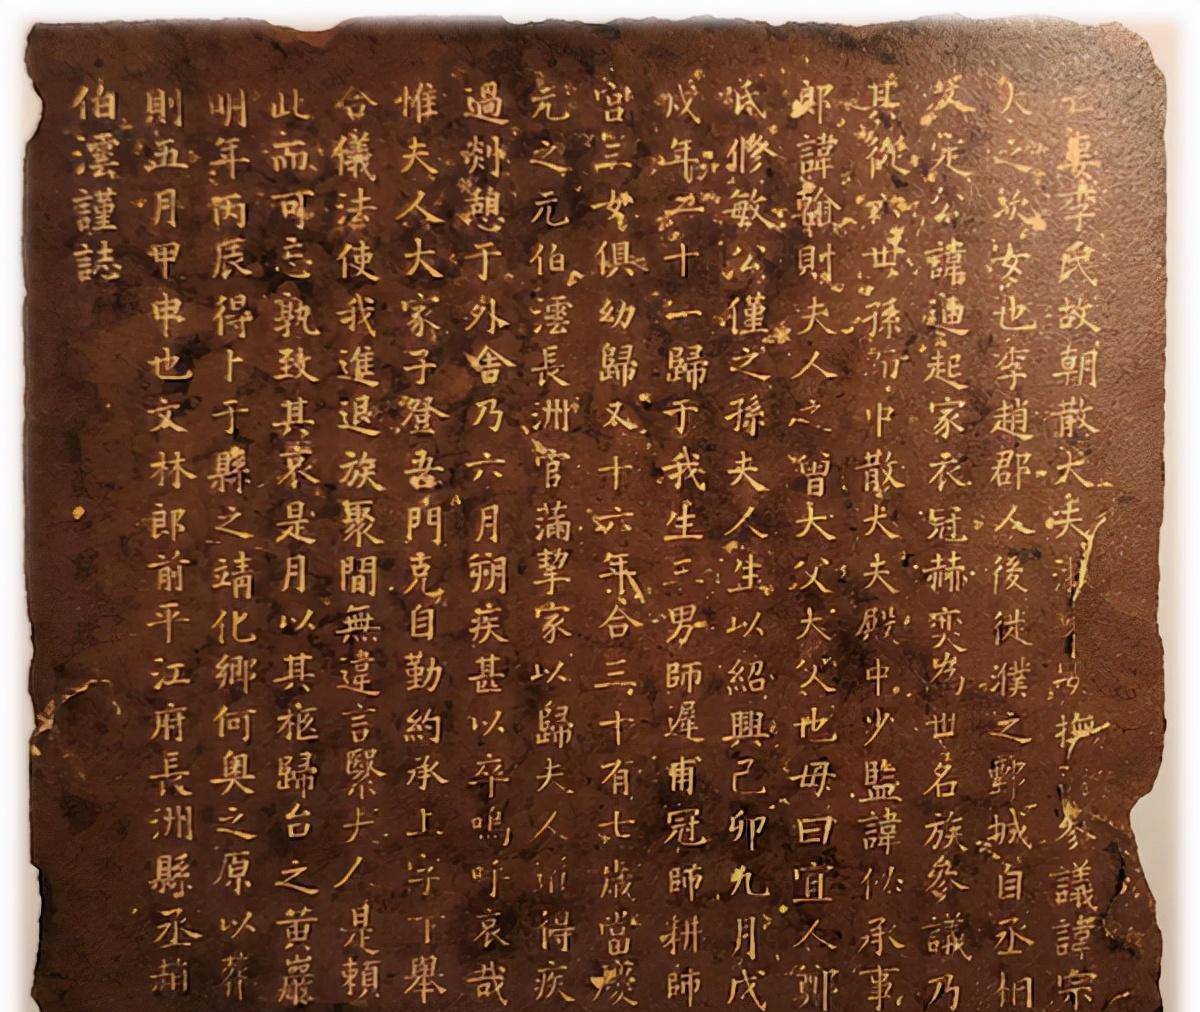 亡妻李氏故朝散大夫淮安撫參議諱宗
之次女也李趙郡人後徙濮之鄄城自丞相
文定公諱迪起家衣冠赫奕為世名族參議乃
其從世孫中散大夫殿中少監諱似承事
郎諱翰則夫人之曾大父大父也母曰宜人鄭
氏修敏公僅之孫夫人生以紹興己卯九月戊
戌年二十一歸于我生三男師遲甫冠師耕師
宮三女俱幼歸又十六年合三十有七歲當慶
元之元伯澐長洲官滿挈家以歸夫人道得疾
過剡憩于外舍乃六月朔疾甚以卒嗚呼哀哉
惟夫人大家子登吾門克自勤約承上字下舉
合儀法使我進退族聚間無違言繄夫人是賴
此而可忘孰致其哀是月以其柩歸台之黃巖
明年丙辰得卜于縣之靖化鄉何奧之原以葬
則五月甲申也文林郎前平江府長洲縣丞趙
伯澐謹誌